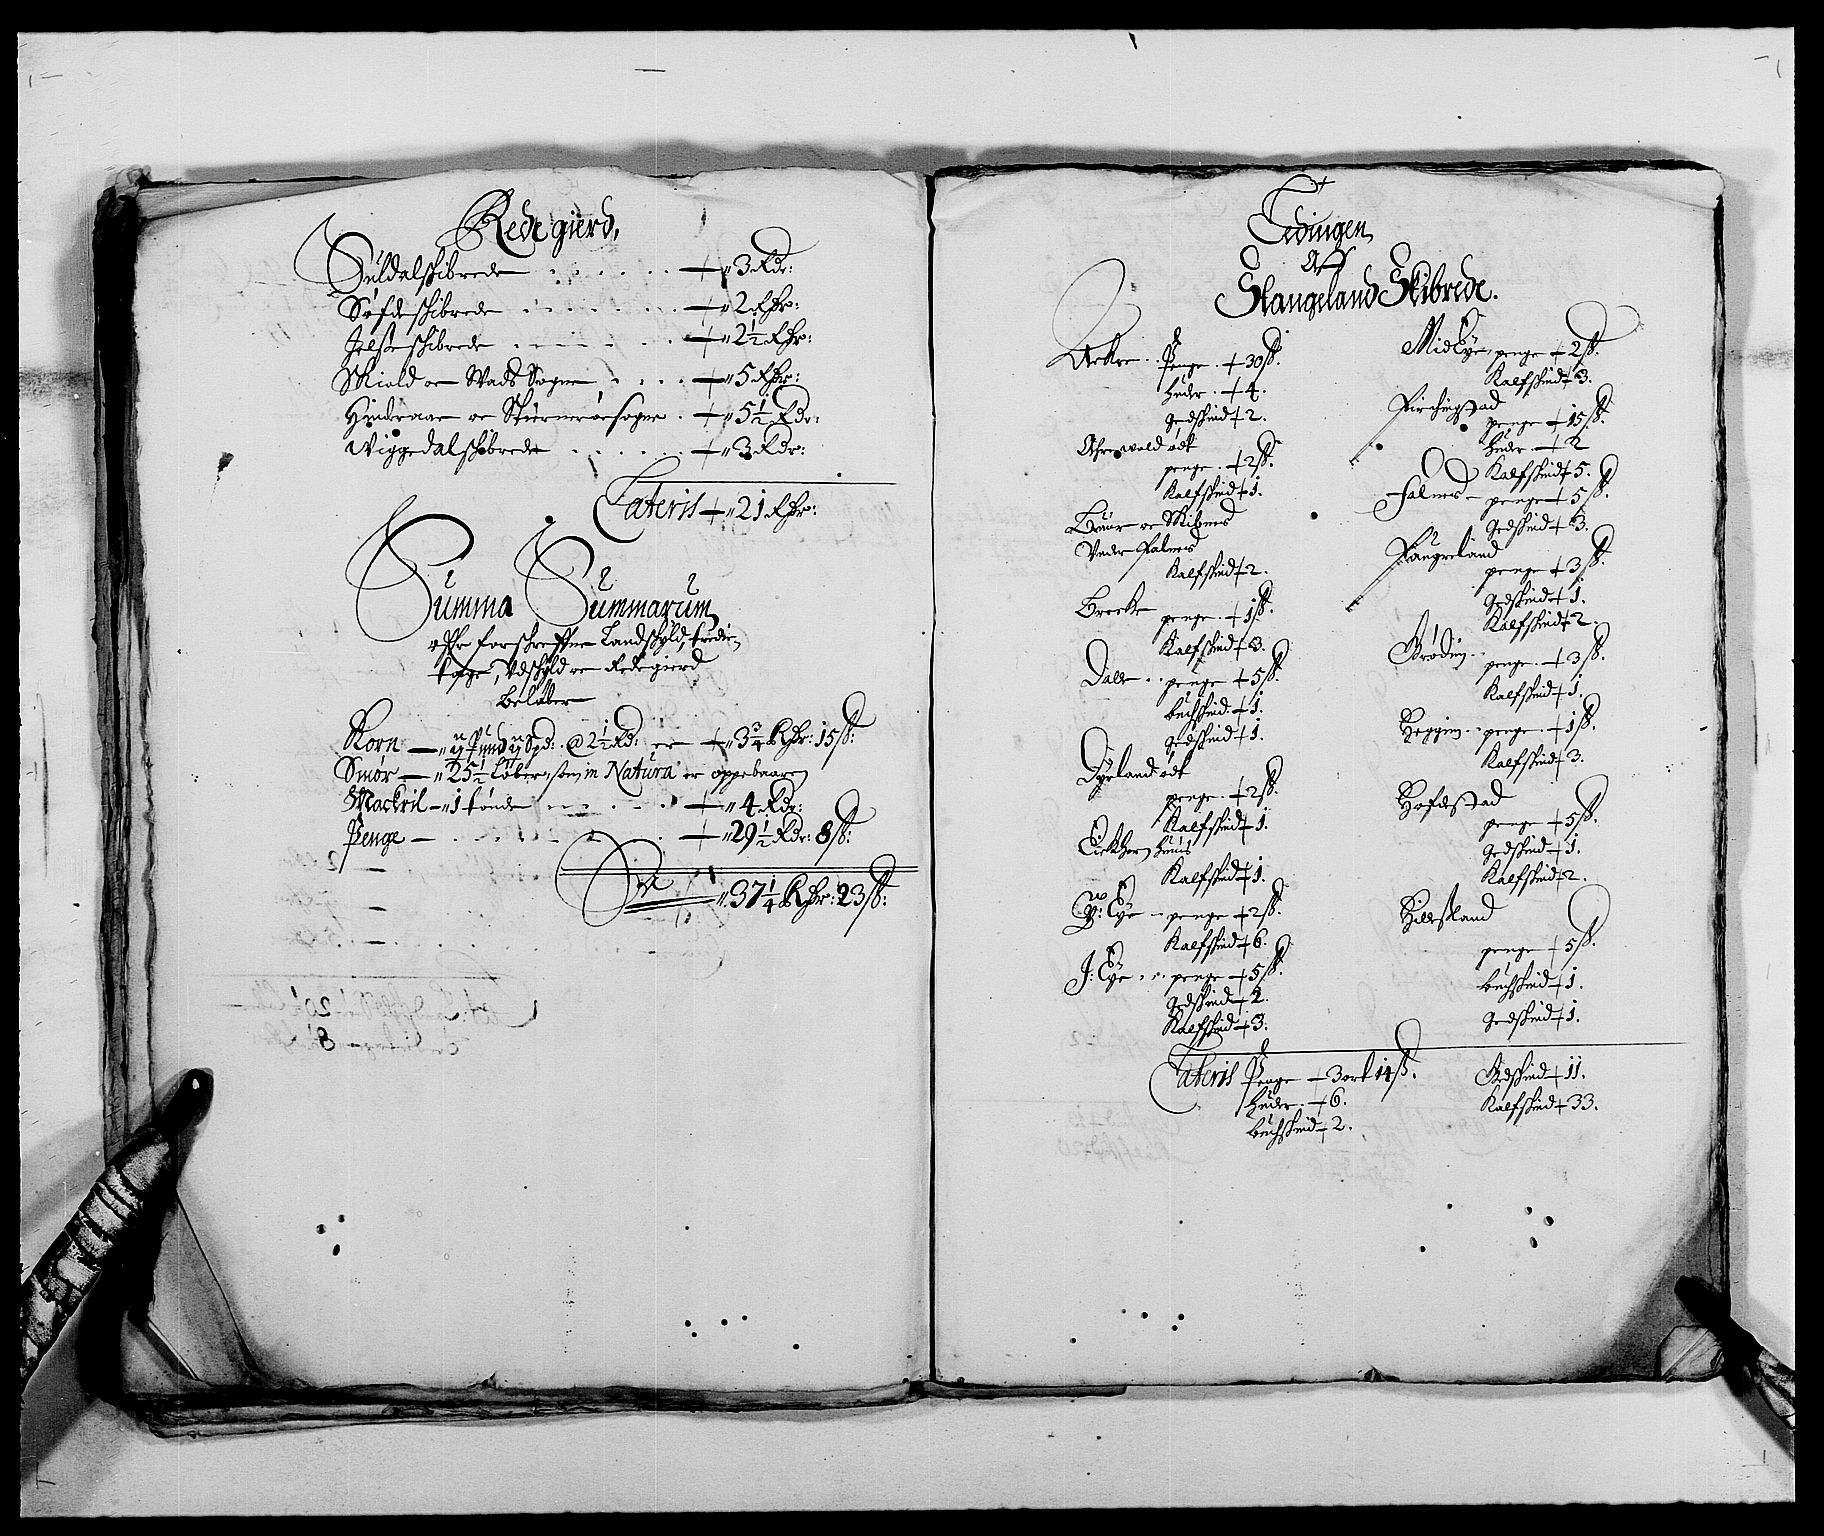 Rede gierd,
Suldalschibrede . . . . . . — 3 Rdr:
Søfdeschibrede . . . . . . — 2 Rdr:
Jelsøeschibrede . . . . . . — 2½ Rdr:
Skiold oc Wads Sogne . . . . — 5 Rdr:
Hinderaae oc Skiernerøesogne . — 5½ Rdr:
Wiggedalschibrede . . . . . . — 3 Rdr:
Lateris — 21 Rdr:
Summa Summarum
effter forschreffne Landschyld, tredie-
tage, Vdschyld oc Redegierd
Beløber
Korn — Pund Spd: @ 2½ Rd: er — 3¾ Rdr: 15 ß:
Smør — 25½ Løber, som in Natura er oppebaaren
Mackril — 1 tønde . . . . — 4 Rdr:
Penge — . . . . . . — 29½ Rdr: 8 ß:
37¼ Rdr: 23 ß:
Tedingen
Aff
Stangeland Skibrede.
Aekre . . Penge . — 30 ß.
huder . — 4.
gedskind — 2.
Ahrewold ødt
penge . — 2 ß.
Kalfskind — 1.
Buar oc Skibnes
Vnder Falnes
Kalfskind — 2.
Brecke penge . — 1 ß.
Kalfskind — 3.
Dale . . penge — 5 ß.
buchskind . — 1.
gedskind — 1.
Dyrland ødt
penge . — 2 ß.
Kalfskind — 1.
Eiekhern huus
Kalfskind — 1.
Y: Eye — penge — 2 ß.
Kalfskind — 6.
J: Eye . . . penge — 5 ß.
gedskind — 2.
Kalfskind — 3.
Mid Eye, penge — 2 ß.
Kalfskind — 3.
Kirchingstad
penge — 15 ß.
huder — 2
Kalfskind — 5.
Falnes — penge — 5 ß.
gedskind — 3.
Fangeland
penge — 3 ß.
gedskind — 1.
Kalfskind — 2.
Grøding . .
penge . — 3 ß.
Kalfskind — 1.
Heggim . . penge . — 1 ß.
Kalfskind — 3.
Hofdestad
penge — 5 ß.
gedskind — 1.
Kalfskind — 2.
Hillesland
penge — 5 ß.
buchskind — 1.
gedskind — 1.
Lateris Penge — 3 ort 14 ß.
huder . — 6.
buchskind — 2.
Gedskind — 11.
Kalfskind — 33.